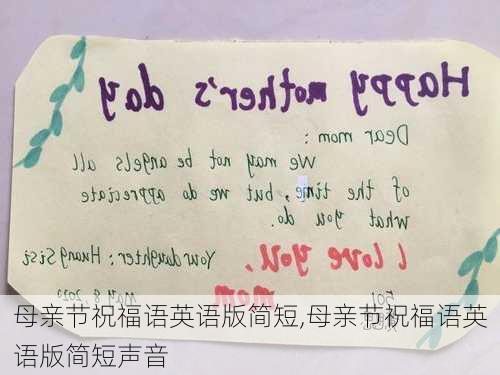 Happy mother's day
Dear mom:
We may not be angels all
of the time, but we do appreciate
what you do.
I love you, Your daughter: Huang Sisi
mom May 8, 2020
母亲节祝福语英语版简短,母亲节祝福语英
语版简短声音